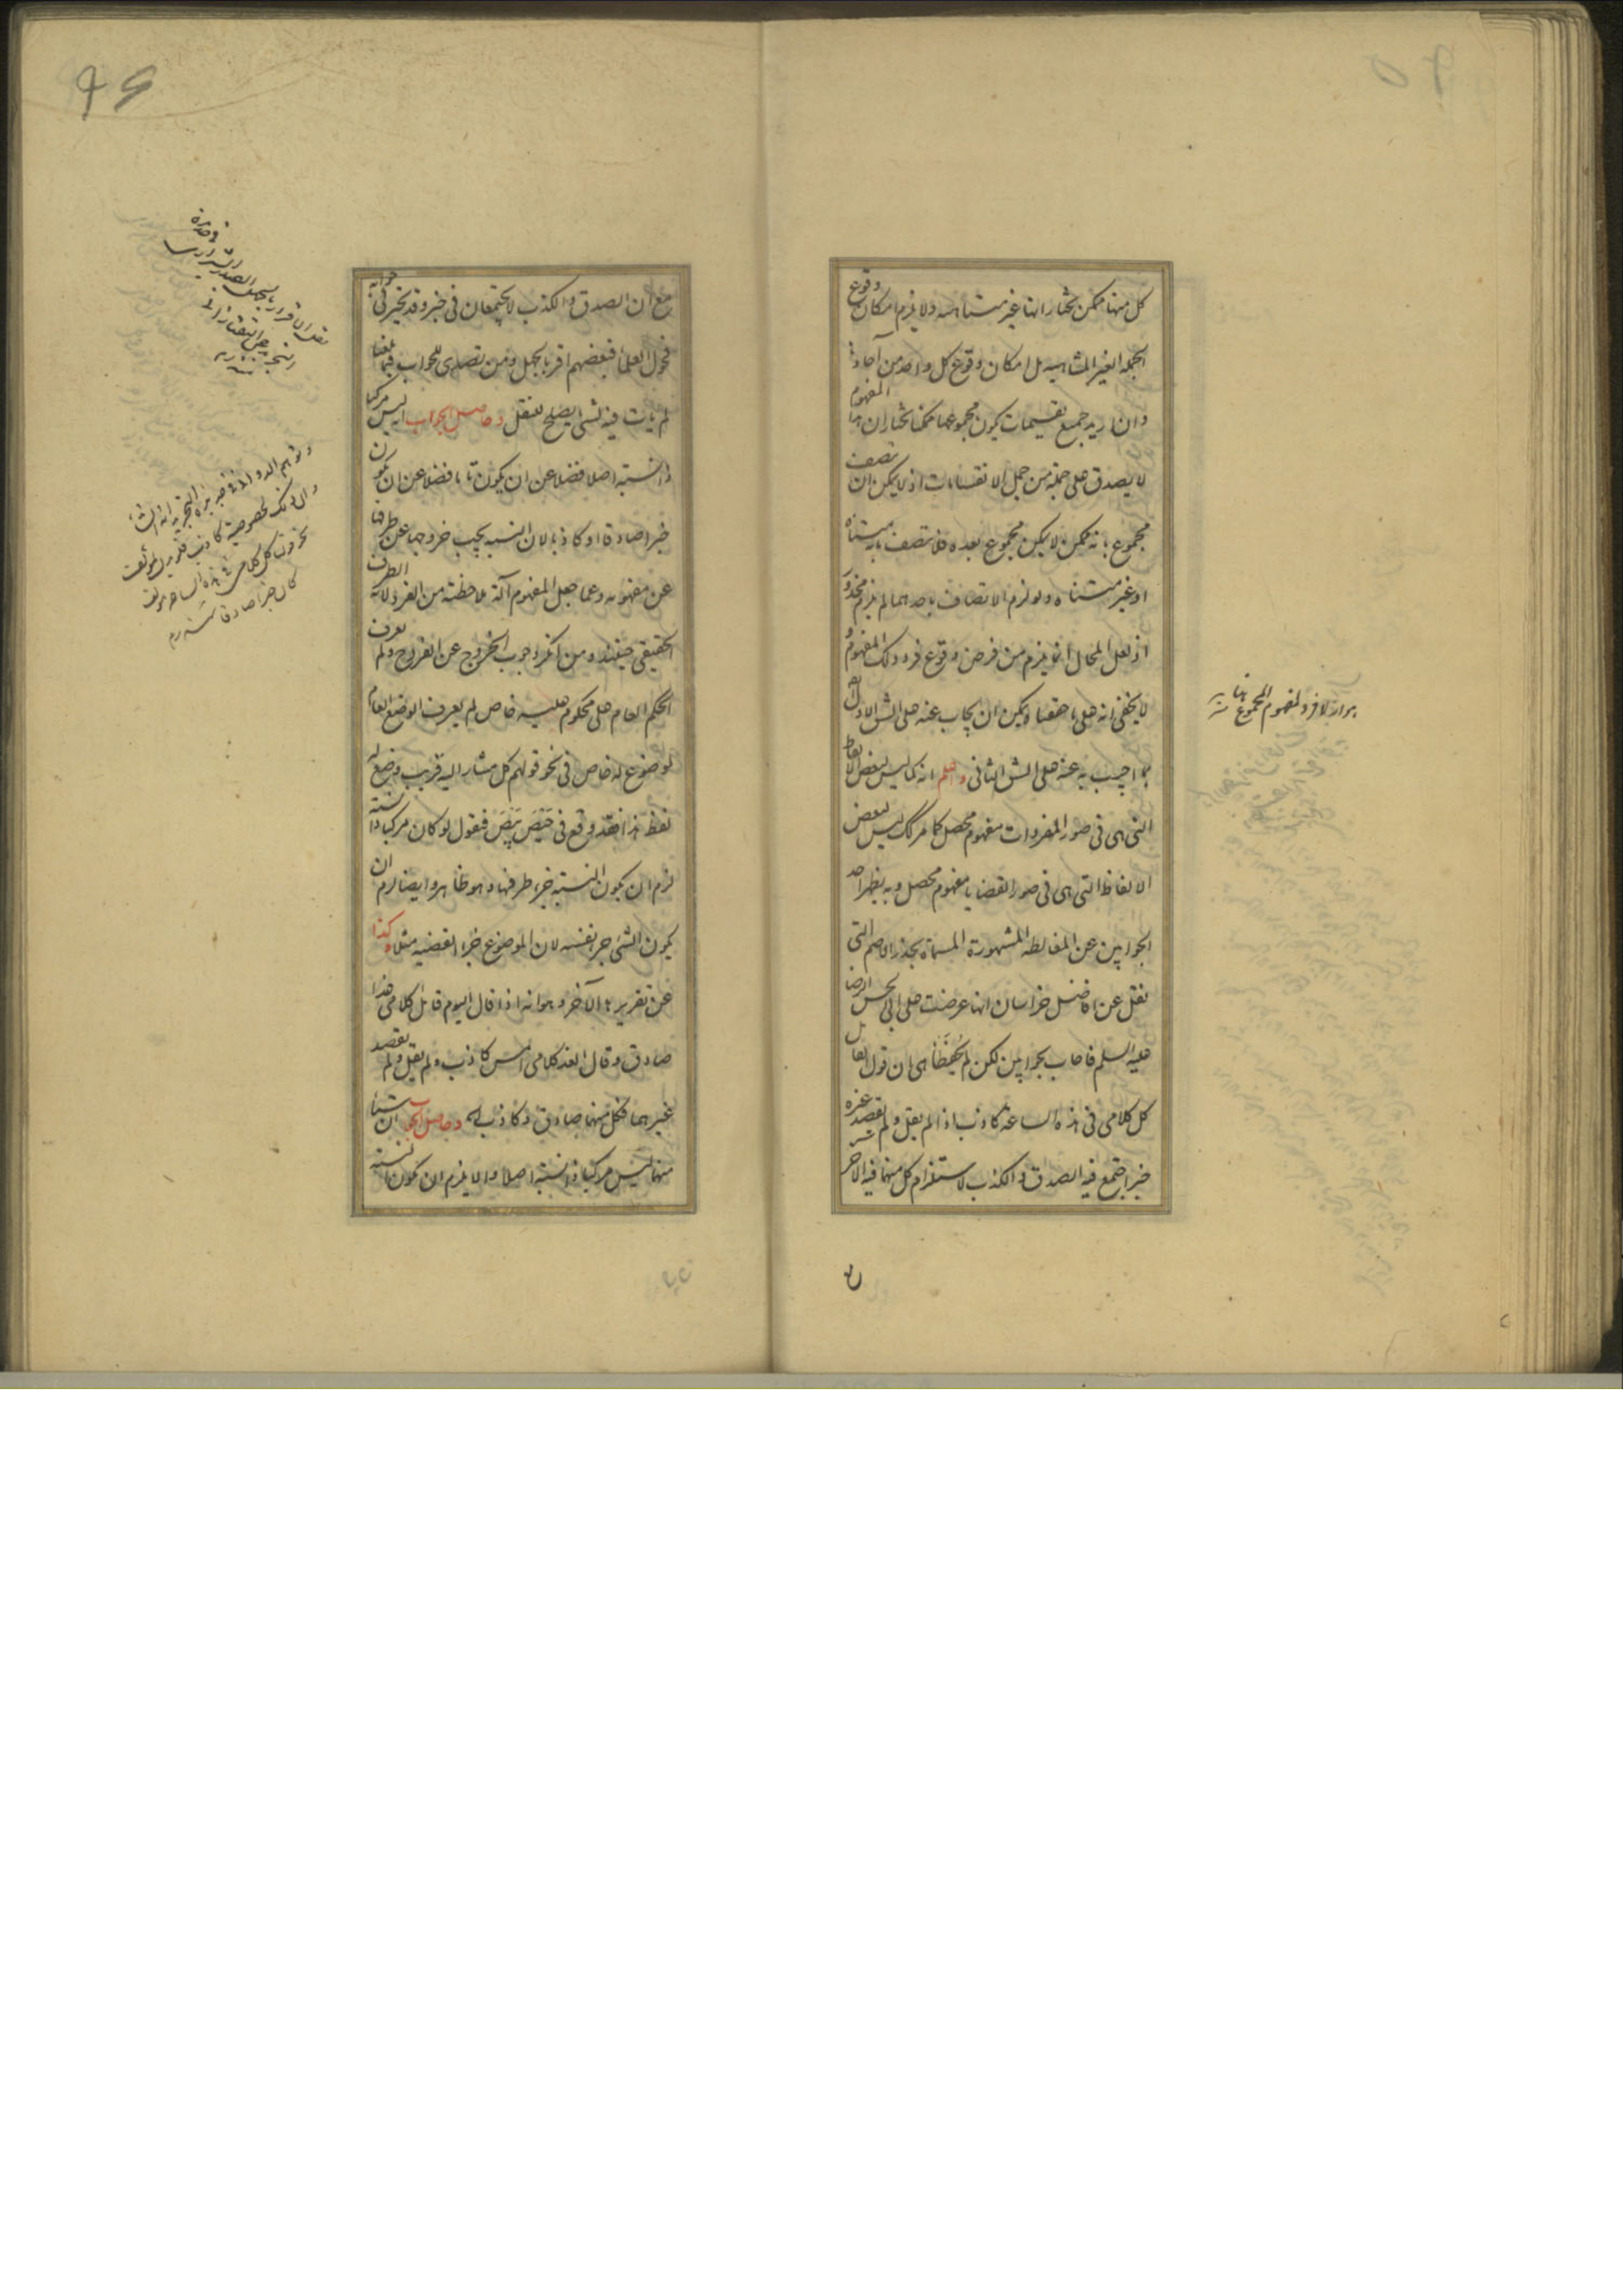 كل منها ممكن نختار انها غير متناهيه ولا يلزم امكان وقوع
الجمله الغير المتناهيه بل امكان وقوع كل واحد من آحادها
وان اريد جميع تقسيمات يكون مجموعها ممكنا نختار ان هذا المفهوم
لا يصدق على جملة من جمل الانقسامات اذ لا يمكن ان تصف
مجموع بانه ممكن لا يمكن مجموع بعده فلا تصف بانه متناه
او غير متناه ولو لزم الاتصاف باحدهما لم يلزم محذور
اذ لعل المحال انما يلزم من فرض وقوع فرد ذلك المفهوم و
لا يخفى انه على ما حققنا يمكن ان يجاب عنه على الشق الاول ايضا
بما اجيب به عنه على الشق الثانى واعلم انه كما ليس لبعض الالفاظ
التى هى فى صور المفردات مفهوم محصل كما مر كك ليس لبعض
الالفاظ التى هى فى صور القضايا مفهوم محصل وبه يظهر احد
الجوابين عن المغالطه المشهورة المسماة بجذر الاصم التى
نقل عن افاضل خراسان انها عرضت على ابى الحسن الرضا
عليه السلم فاجاب بجوابين لكن لم يُحفَظا هى ان قول القائل
كل كلامى فى هذه الساعة كاذب اذا لم يقل ولم يقصد غيره
خبر اجتمع فيه الصدق والكذب لاستلزام كل منهما فيه الاخر
مع ان الصدق والكذب لا يجتمعان فى خبر وقد تحير فى جوابه
فحول العلماء فبعضهم اقر بالجهل ومن تصدى للجواب فيما بلغنا
لم يات فيه بشىء يصلح للنقل وحاصل الجواب انه ليس مركبا
ذا نسبة اصلا فضلا عن ان يكون تاما فضلا عن ان يكون
خبرا صادقا او كاذبا لان النسبه يجب خروجها عن طرفيها
عن مفهومه وعما جعل المفهوم آلة ملاحظته من الفرد لانه الطرف
الحقيقى حينئذ ومن انكر وجوب الخروج عن الفرد ولم يعرف
الحكم العام على محكوم عليه خاص لم يعرف الوضع العام
لموضوع له خاص فى نحو قولهم كل مشار اليه قريب وضع له
لفظ هذا فقد وقع فى حَيْصَ بَيْصَ فنقول لو كان مركبا ذا نسبة
لزم ان يكون النسبة جزء طرفها وهو ظاهر وايضا لزم ان
يكون الشىء جزء نفسه لان الموضوع جزء القضيه مثلا وكذا
عن تقريرها الآخر وهو انه اذا قال اليوم قائل كلامى غدا
صادق وقال الغد كلامى امس كاذب ولم يقل ولم يقصد
غيرهما فكل منهما صادق وكاذب وحاصل الجواب ان شيئا
منهما ليس مركبا ذا نسبة اصلا والا يلزم ان يكون النسبة